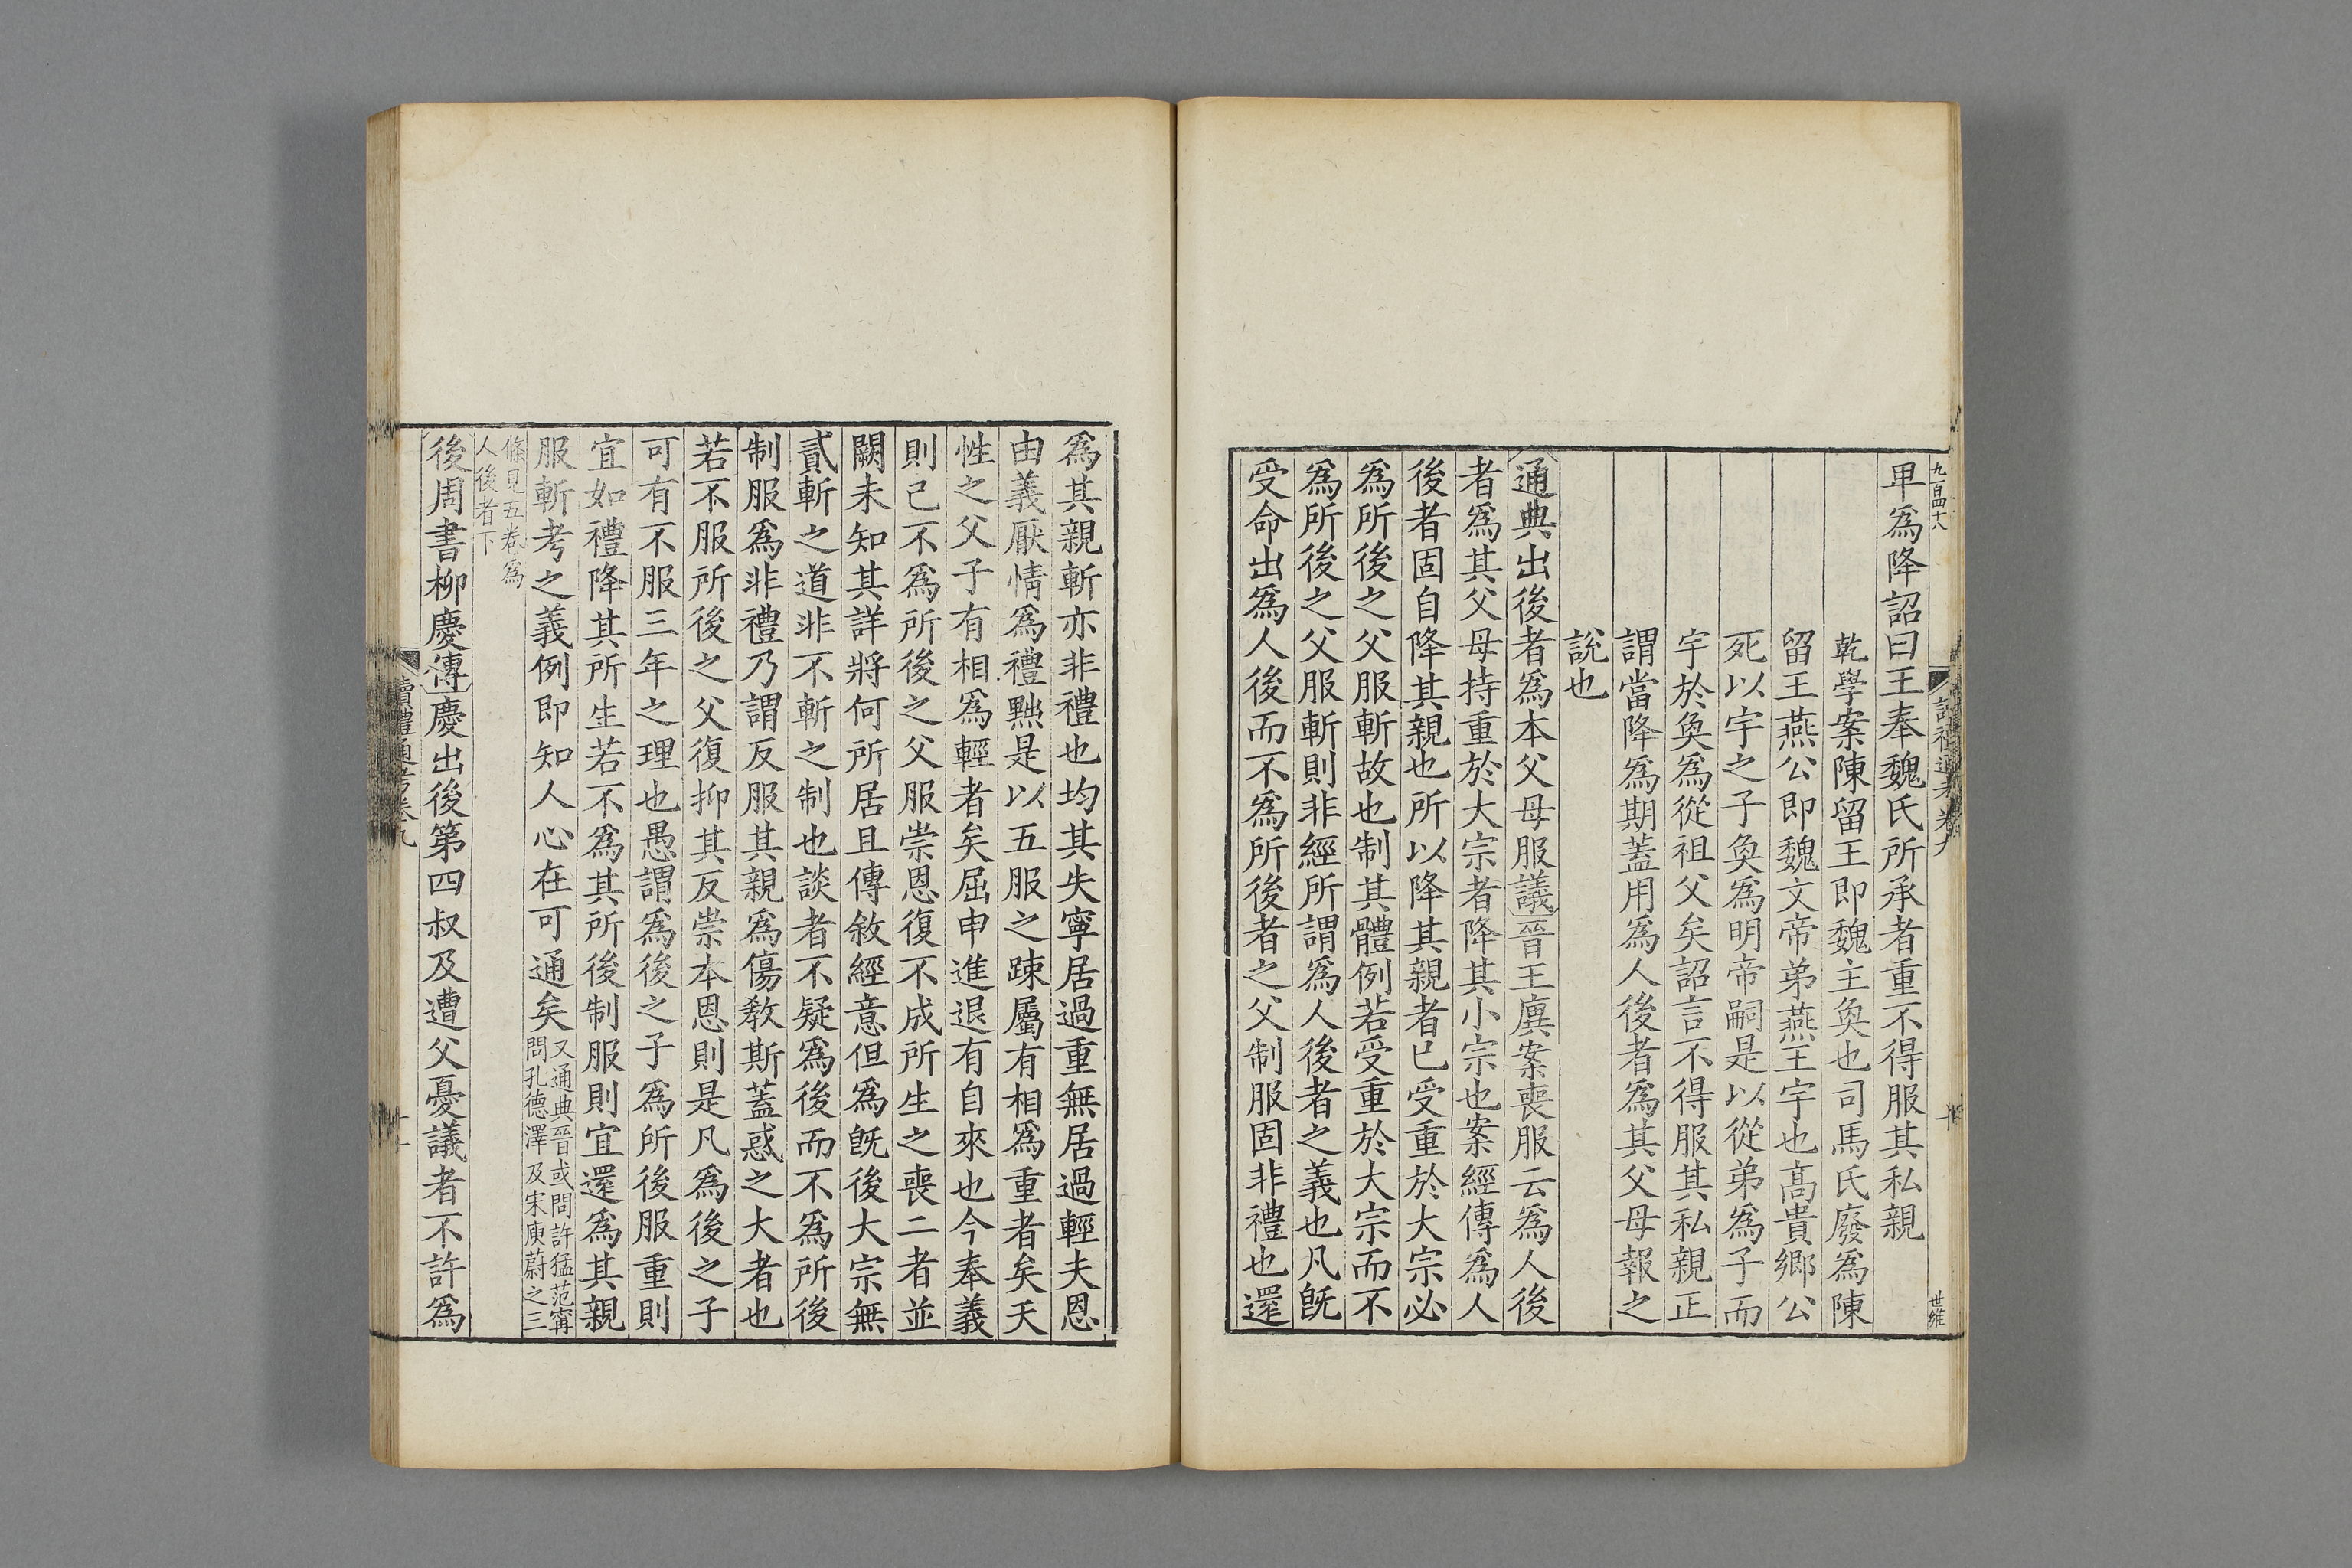 九百四十八
讀禮通考卷九
十
世維
卑爲降詔曰王奉魏氏所承者重不得服其私親
乾學案陳留王即魏主奐也司馬氏廢爲陳
留王燕公即魏文帝弟燕王宇也高貴鄉公
死以宇之子奐爲明帝嗣是以從弟爲子而
宇於奐爲從祖父矣詔言不得服其私親正
謂當降爲期蓋用爲人後者爲其父母報之
說也
通典出後者爲本父母服議晉王廙案喪服云爲人後
者爲其父母持重於大宗者降其小宗也案經傳爲人
後者固自降其親也所以降其親者已受重於大宗必
爲所後之父服斬故也制其體例若受重於大宗而不
爲所後之父服斬則非經所謂爲人後者之義也凡旣
受命出爲人後而不爲所後者之父制服固非禮也還
爲其親斬亦非禮也均其失寧居過重無居過輕夫恩
由義厭情爲禮黜是以五服之踈屬有相爲重者矣天
性之父子有相爲輕者矣屈申進退有自來也今奉義
則己不爲所後之父服崇恩復不成所生之喪二者並
闕未知其詳將何所居且傳敘經意但爲旣後大宗無
貳斬之道非不斬之制也談者不疑爲後而不爲所後
制服爲非禮乃謂反服其親爲傷敎斯蓋惑之大者也
若不服所後之父復抑其反崇本恩則是凡爲後之子
可有不服三年之理也愚謂爲後之子爲所後服重則
宜如禮降其所生若不爲其所後制服則宜還爲其親
服斬考之義例即知人心在可通矣又通典晉或問許猛范甯
問孔德澤及宋庾蔚之三
條見五卷爲
人後者下
後周書柳慶傳慶出後第四叔及遭父憂議者不許爲
讀禮通考卷九
十一